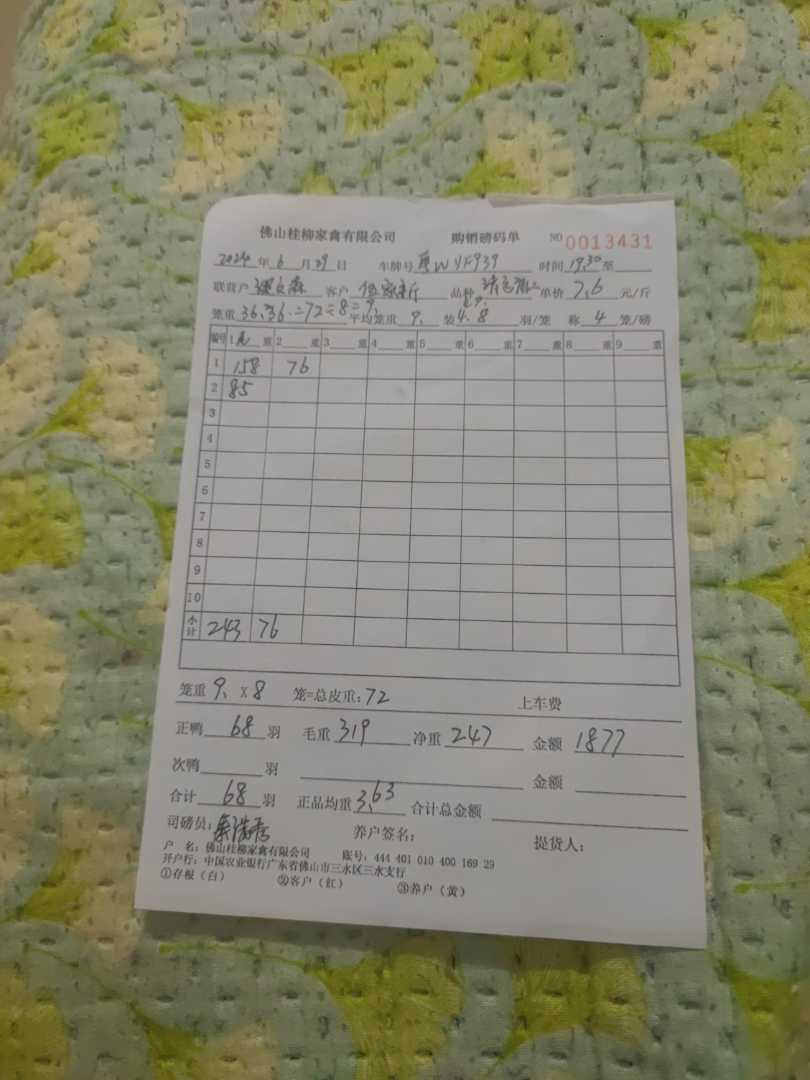 佛山桂柳家禽有限公司 购销磅码单 NO 0013431
2024 年 6 月 29 日 车牌号 粤WYF939 时间 19:30 至
联营户 客户 品种 单价 7.6 元/斤
笼重 36.36.=72÷8=9. 平均笼重 9. 装 8 羽/笼 称 4 笼/磅
编号 1 重 2 重 3 重 4 重 5 重 6 重 7 重 8 重 9 重
1 158 76
2 85
3
4
5
6
7
8
9
10
小计 243 76
笼重 9. x 8 笼=总皮重: 72 上车费
正鸭 68 羽 毛重 319 净重 247 金额 1877
次鸭 羽 金额
合计 68 羽 正品均重 3.63 合计总金额
司磅员: 养户签名: 提货人:
户 名: 佛山桂柳家禽有限公司 账号: 444 401 010 400 169 29
开户行: 中国农业银行广东省佛山市三水区三水支行
①存根（白） ②客户（红） ③养户（黄）